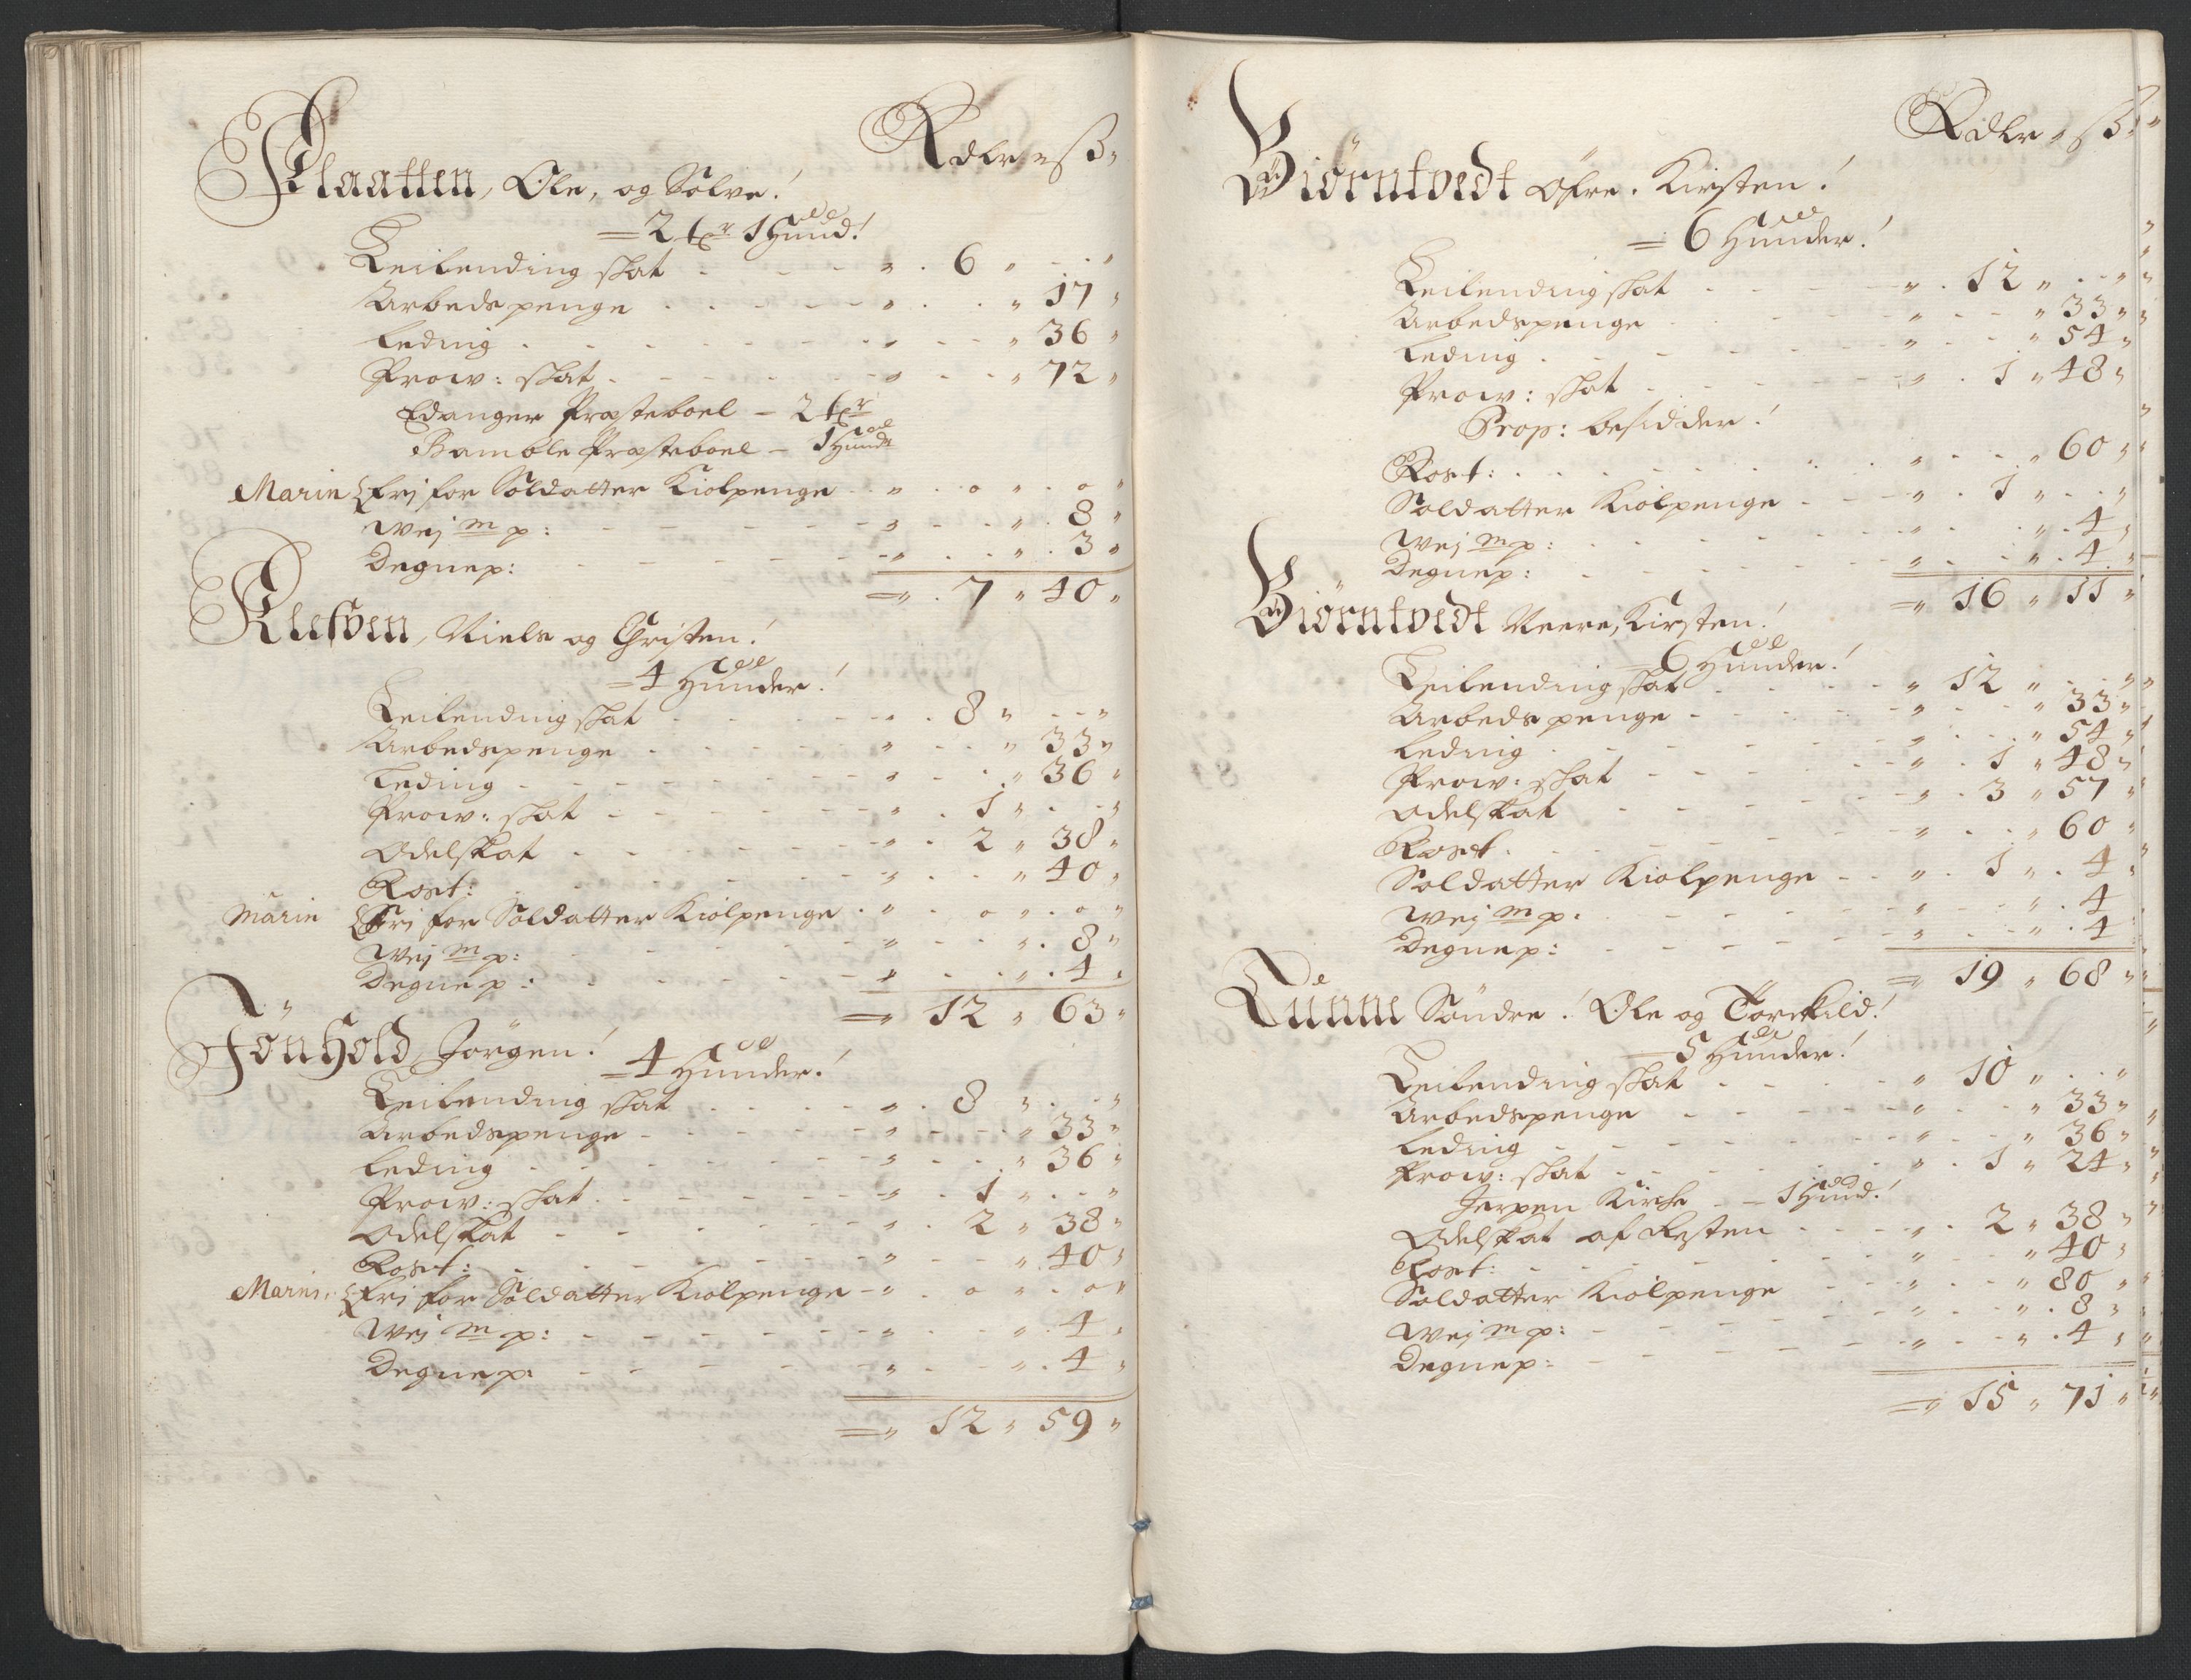 Rdlr " ß "
Plaatten, Ole, og Sólve!
= 2 tr 1 Hund!
Leilending skat - - - " . 6 " - . "
Arbeds penge . . . . - - " . . " 17 "
Leding . - . - - - - " - - " 36 "
Prow: skat . - - - - - " - - " 72 "
Edanger Præsteboel - 2 tr
Bamble Præsteboel - 1 Hund
Marin { Fri for Soldatter Kiolpenge - " . o " . o "
Wej m p: - - - - - " - - " . 8 "
Degnep: - - - - - " . . " . 3 "
= " . 7 " 40 "
Klefven, Niels og Christen!
= 4 Hunder!
Leilending skat - - - " . 8 " - - "
Arbedspenge . - - - - " - - " 33 "
Leding - - - - - - " - - " 36 "
Prow: skat - - - - - " . 1 " . . "
Odelskat . - - - - - " . 2 " 38 "
Rost: - - - - - - " - - " 40 "
Marin { Fri for Soldatter Kiolpenge . " . o " . o "
Wej m p: - - - - - " - - " . 8 "
Degnep: . - - - - - " . . " . 4 "
= " 12 " 63 "
Jönhold, Jórgen!
= 4 Hunder!
Leilending skat . . - - " . 8 " . . "
Arbedspenge - - - - - " - - " 33 "
Leding - - - - - - " - - " 36 "
Prow: skat . - - - - - " . 1 " . . "
Odelskat - - - - - - " . 2 " 38 "
Rost: - - - - - - " - - " 40 "
Marin { Fri for Soldatter Kiolpenge - " . o " . o "
Wej m p: - - - - - " - - " . 4 "
Degnep: - - - - - " . - " . 4 "
= " 12 " 59 "
Rdlr " ß "
Biörntvedt Ófre. Kirsten!
= 6 Hunder!
Leilending skat - - - " . 12 " . . "
Arbedspenge - - - - " - - " 33 "
Leding . - - - - - " - - " 54 "
Prow: skat . - - - - " . 1 " 48 "
Prop: besidder!
Rost: . . . . . . " - - " 60 "
Soldatter Kiolpenge - - - " . 1 " . . "
Wej m p: - - - - - " . . " . 4 "
Degnep: . - - - - " . . " . 4 "
= " 16 " 11 "
Biörntvedt Neere, Kirsten!
= 6 Hunder!
Leilending skat . - - - " 12 " . . "
Arbeds penge - - - - - " - - " 33 "
Leding . - - - - - " . . " 54 "
Prow: skat - - - - - " . 1 " 48 "
Odelskat - - - - - " . 3 " 57 "
Rost . - - - - - " . . " 60 "
Soldatter Kiolpenge - - " . 1 " . 4 "
Wej m p: - - - - - " - - " . 4
Degnep: . - - - - - " - - " . 4
= " 19 " 68 "
Tünne Sóndre! Ole og Torckild!
= 5 Hunder!
Leilending skat . - - - " 10 " . . "
Arbedspenge - - - - - " - - " 33 "
Leding - - - - - - " - - " 36 "
Prow: skat - - - - - " . 1 " 24 "
Jerpen Kircke - - 1 Hund!
Odelskat af Resten - - - " . 2 " 38 "
Rost: - - - - - - " - - " 40 "
Soldatter Kiolpenge - - - " - - " 80 "
Wej m p: - - - - - " . . " . 8 "
Degnep: - - - - - " - - " . 4 "
= " 15 " 71 "